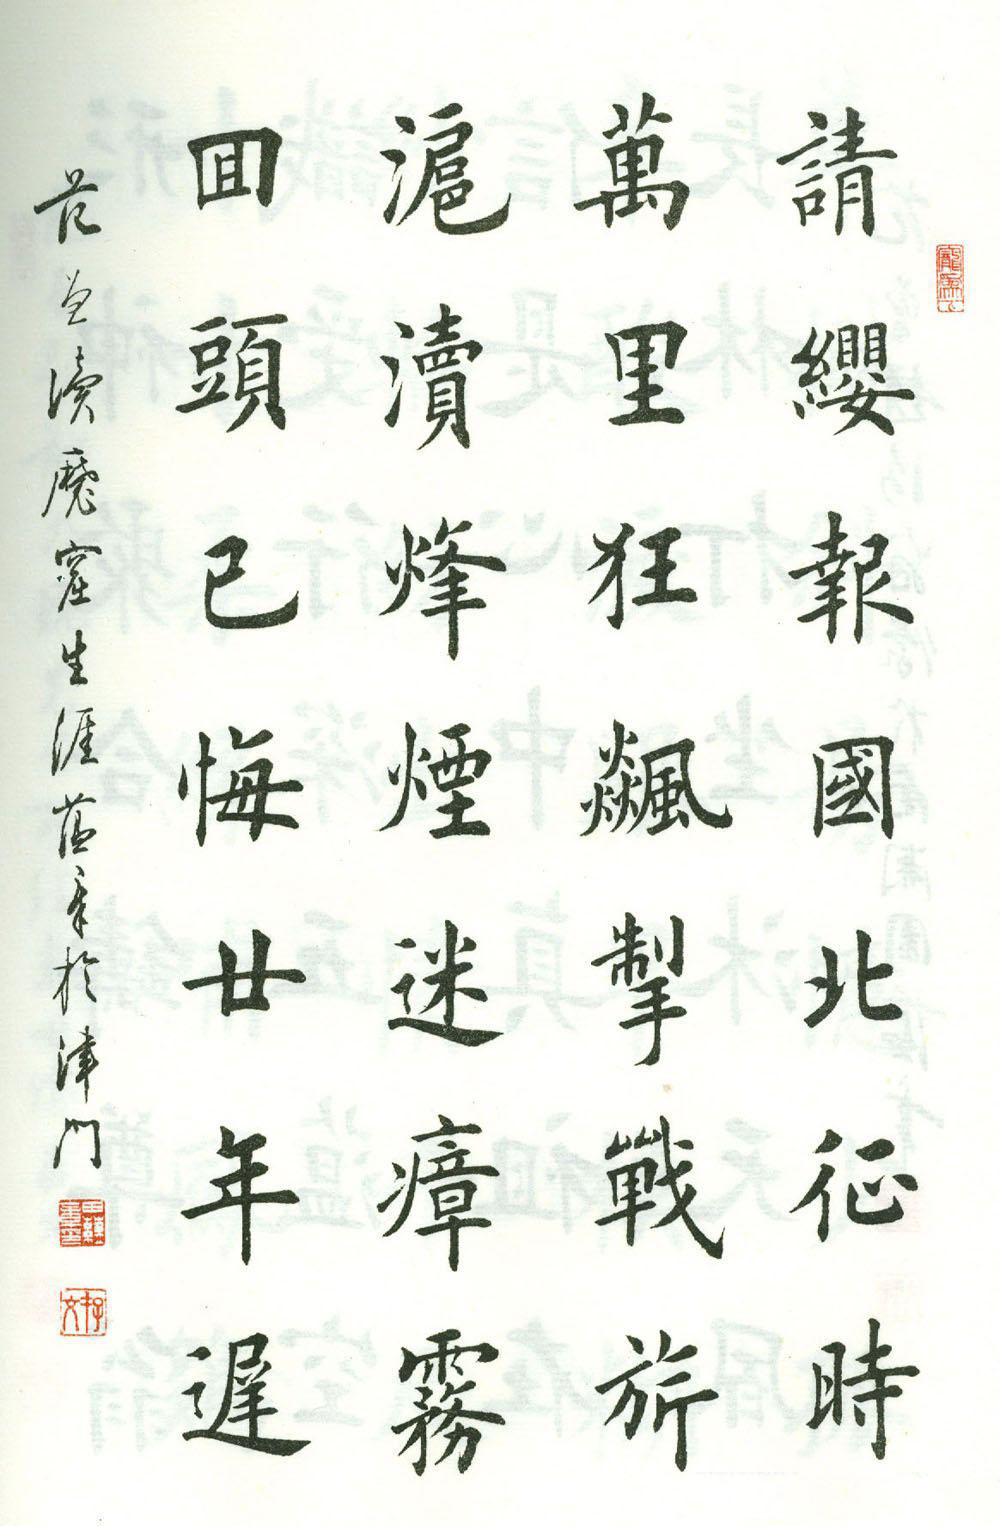 請纓報國北征時
萬里狂飇掣戰旂
滬瀆烽煙迷瘴霧
囬頭已悔廿年遲
讀魔窟生涯蘊章於津門